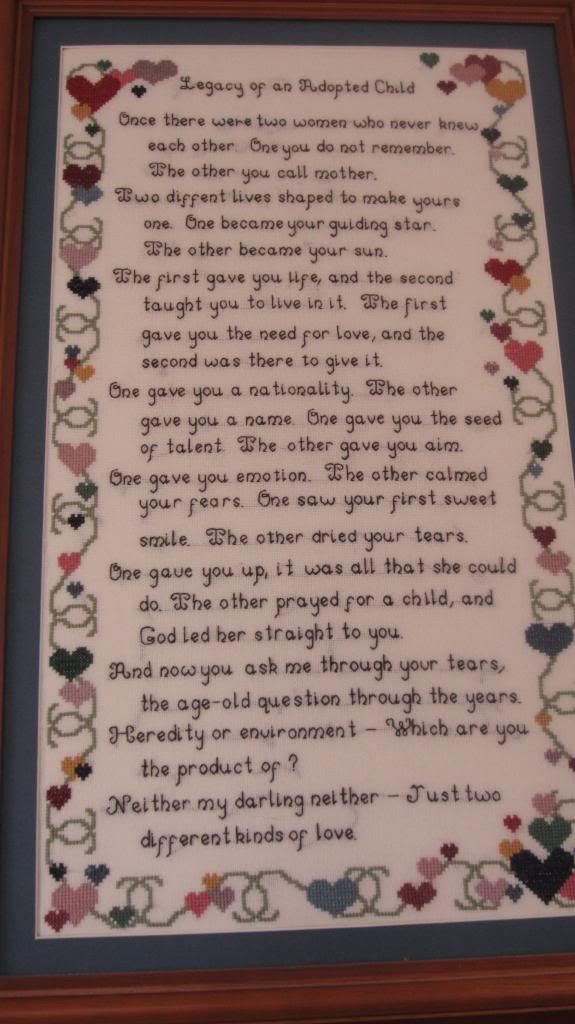 Legacy of an Adopted Child
Once there were two women who never knew
each other. One you do not remember.
The other you call mother.
Two diffent lives shaped to make yours
one. One became your guiding star.
The other became your sun.
The first gave you life, and the second
taught you to live in it. The first
gave you the need for love, and the
second was there to give it.
One gave you a nationality. The other
gave you a name. One gave you the seed
of talent. The other gave you aim.
One gave you emotion. The other calmed
your fears. One saw your first sweet
smile. The other dried your tears.
One gave you up, it was all that she could
do. The other prayed for a child, and
God led her straight to you.
And now you ask me through your tears,
the age-old question through the years.
Heredity or environment – Which are you
the product of?
Neither my darling neither – Just two
different kinds of love.